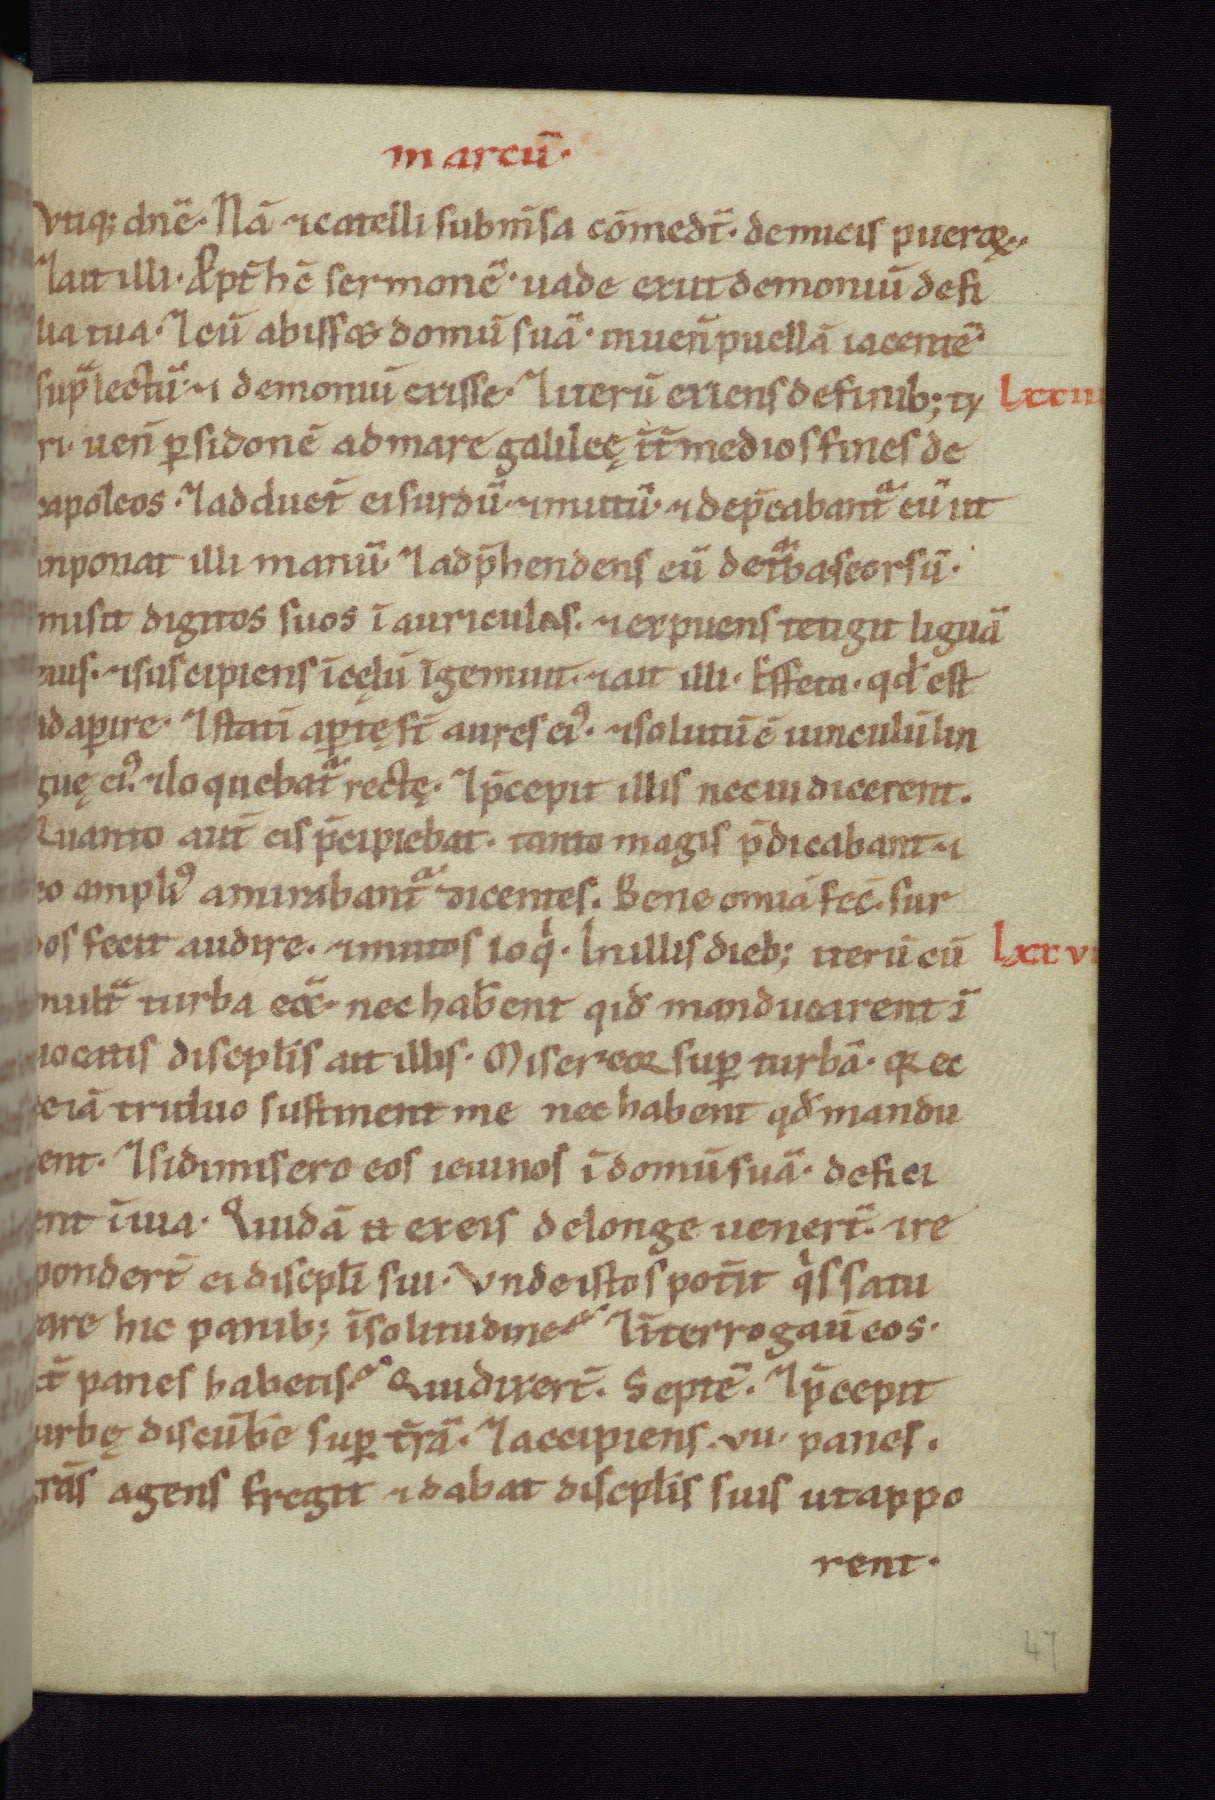 marcū·
Vtiq; dnē· Nā ⁊ catelli sub m̄sa cōmedt̄· de micis pueroꝝ·
⁊ait illi· Ꝓpt̄ hc̄ sermonē· uade exiit demoniū de fi
lia tua· ⁊ cū abisset domū suā· inuen̄ puellā iacentē
sup̄ lectū· ⁊ demoniū exisse· ⁊ iterū exiens de finib; ty
Lxxiiii
ri· uen̄ ꝑ sidonē ad mare galileę īt̄ medios fines de
capoleos· ⁊ adduct̄ ei surdū· ⁊ mutū· ⁊ dep̄cabant̄ eū ut
inponat illi manū· ⁊ adp̄hendens eū de turba seorsū·
misit digitos suos ī auriculas· ⁊ expuens tetigit liguā
eius· ⁊ suscipiens ī cęlū īgemuit· ⁊ ait illi· Effeta· qđ est
adaꝑire· ⁊ statī aꝑtę sī aures ei9· ⁊ solutū ē uinculū lin
guę ei9· ⁊ loquebat̄ rectę· ⁊ p̄cepit illis ne cui dicerent·
Quanto aut̄ eis p̄cipiebat· tanto magis p̄dicabant ⁊
eo ampli9 amirabant̄ dicentes· Bene omīa fec̄· sur
dos fecit audire· ⁊ mutos loq̄· In illis dieb; iterū cū
Lxxvi
multa turba eēt· nec habent qid manducarent ī
uocatis discplīs ait illis· Misereor suꝑ turbā· qr ec
ce iā triduo sustinent me nec habent qđ mandu
cent· ⁊ si dimisero eos ieiunos ī domū suā· defici
ent ī uia· Quidā ē ex eis de longe uenert̄· ⁊ re
spondert̄ ei discplī sui· Vnde istos pot̄it qis satu
rare hic panib; ī solitudine ⁊ īterrogau̅ eos·
ct̄ panes habetis· Qui dixert̄· Septē· ⁊ p̄cepit
turbę discūbe̅ suꝑ t̄rā· ⁊ accipiens ·vii· panes·
grās agens fregit ⁊ dabat discplīs suis ut appo
rent·
47